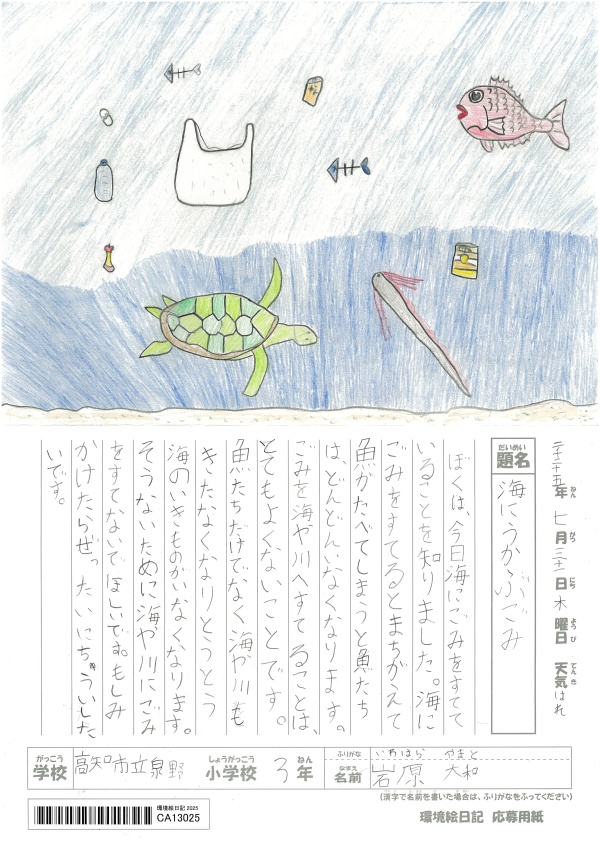 二千二十五年 七月三十一日 木曜日 天気 はれ
ねん がつ にち ようび てんき
だいめい
題名 海にうかぶごみ
ぼくは、今日海にごみをすてて
いることを知りました。海に
ごみをすてるとまちがえて
魚がたべてしまうと魚たち
は、どんどんいなくなります。
ごみを海や川へすてることは、
とてもよくないことです。
魚たちだけでなく海や川も
きたなくなりとうとう
海のいきものがいなくなります。
そうないために海や川にごみ
をすてないでほしいです。もしみ
かけたらぜったいにちゅういした
いです。
がっこう しょうがっこう ねん ふりがな いわはら やまと
学校 高知市立泉野 小学校 3年 なまえ 名前 岩原 大和
(漢字で名前を書いた場合は、ふりがなをふってください)
環境絵日記 2025
CA13025
環境絵日記 応募用紙